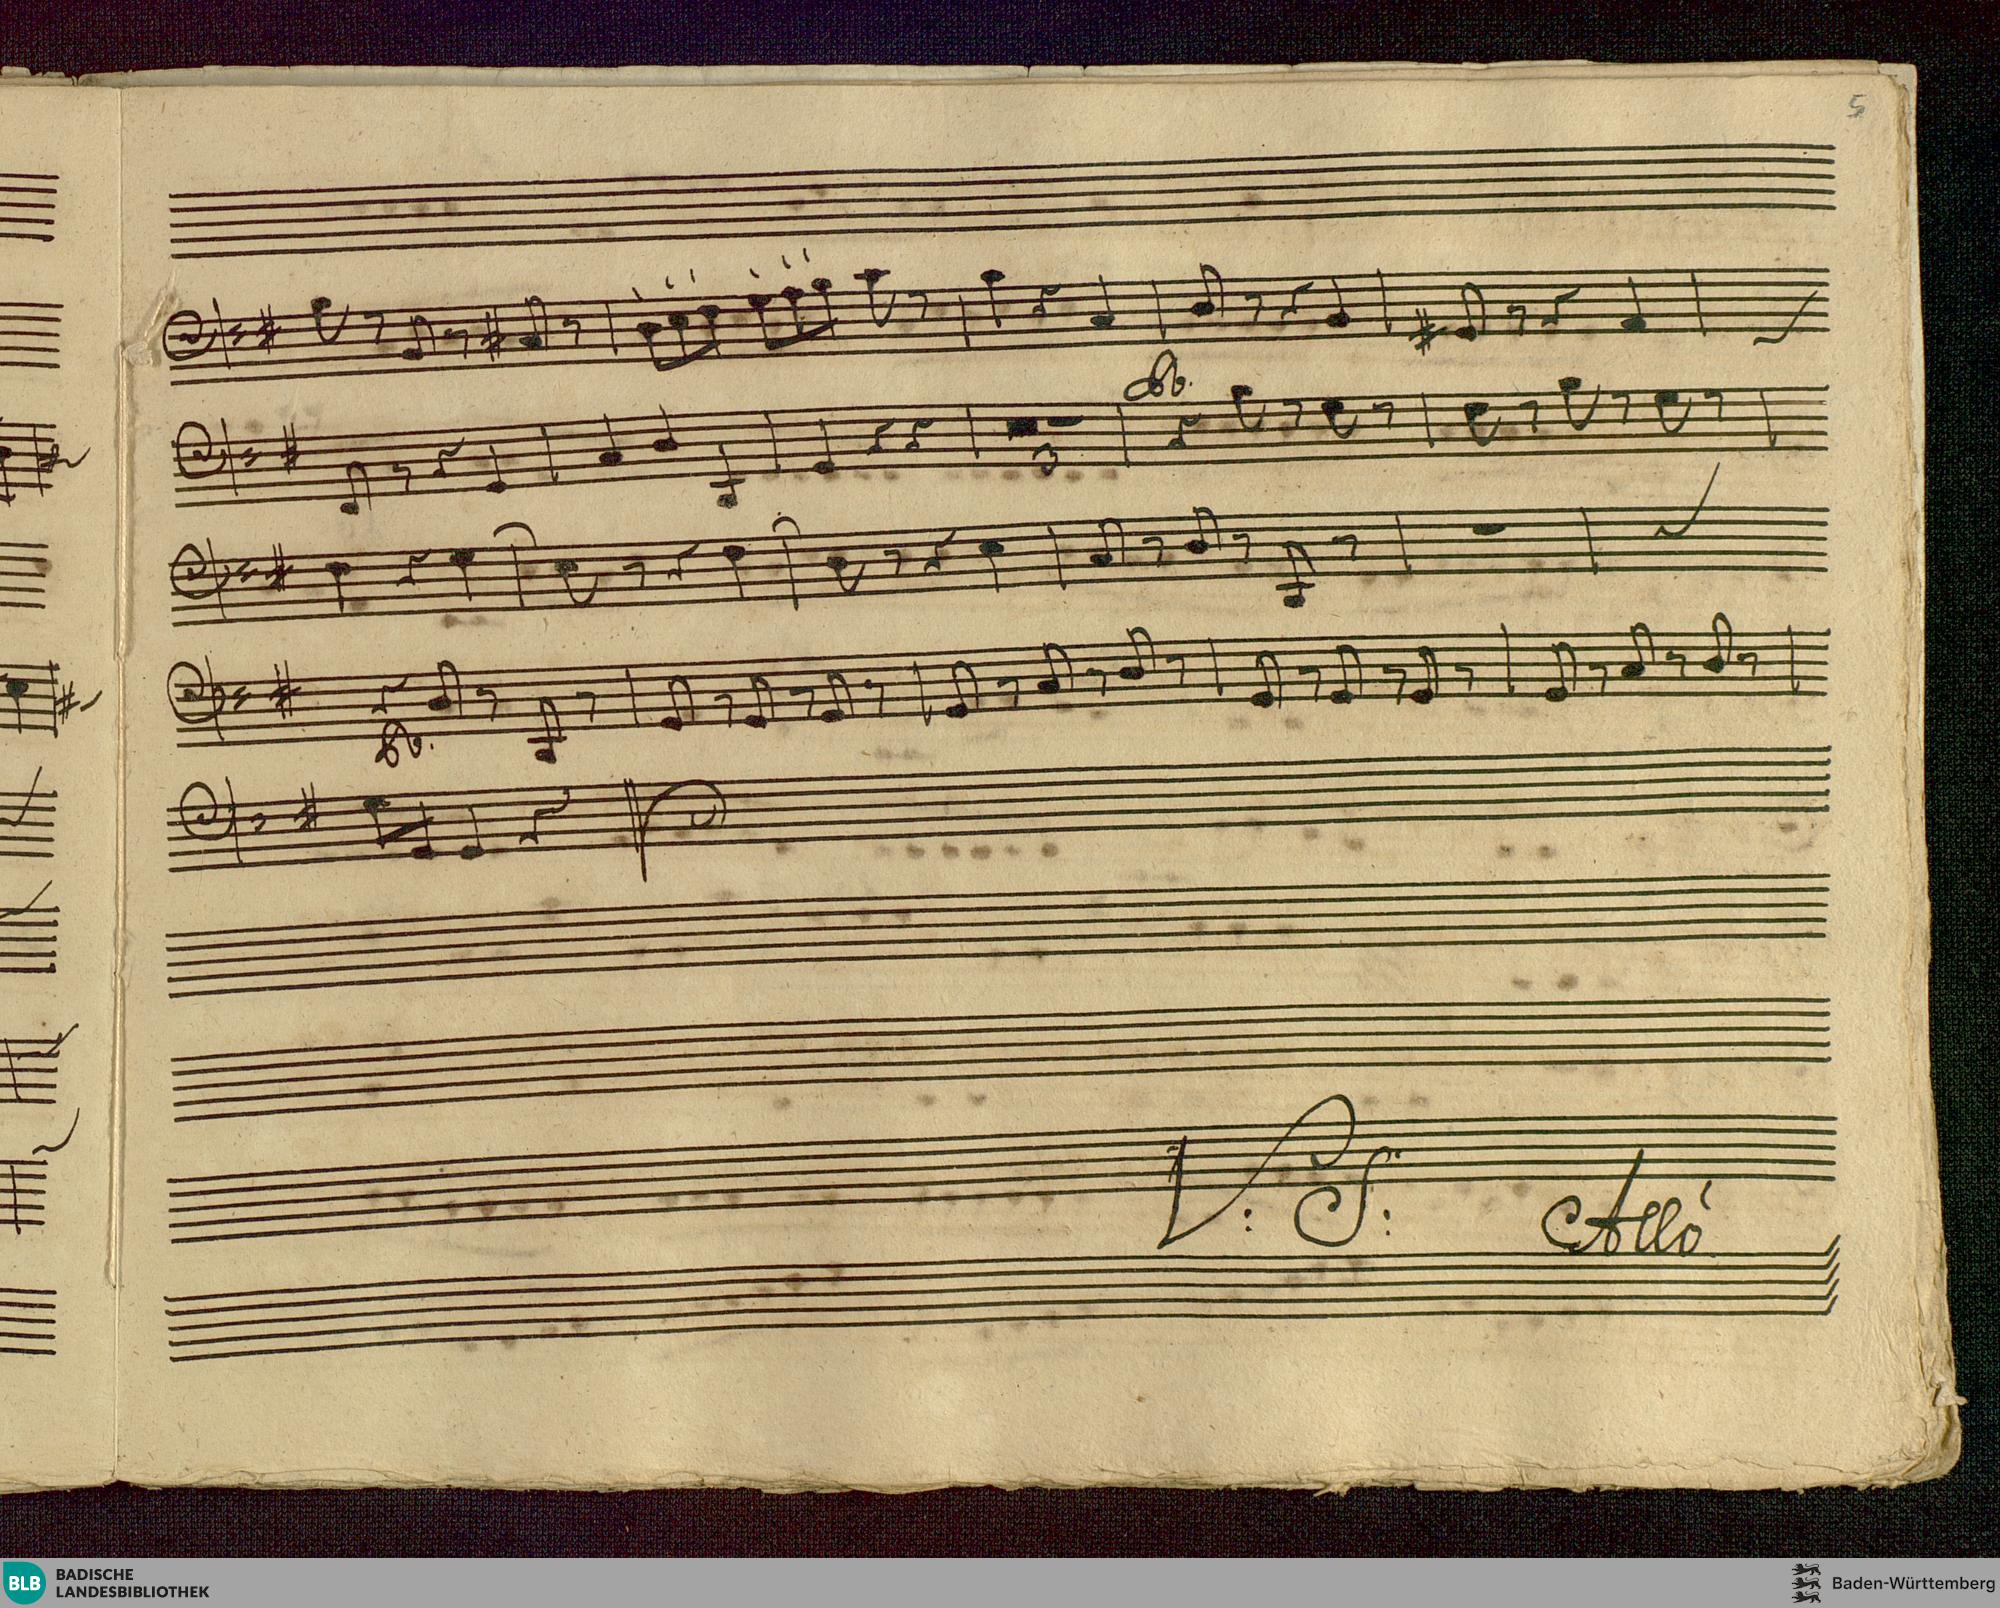 5
3
V: S: Allo
BLB BADISCHE
LANDESBIBLIOTHEK
Baden-Württemberg